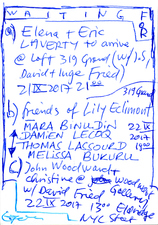 WAITING FOR
a) Elena + Eric
LAVERTY to arrive
@ Loft 319 Grand (w/ J.S,
David + Inge Fried)
21 IX 2017 21:00
319 Grand
b) friends of Lily Eclimont
MARA BINUDIN 22 IX
DAMIEN LECOQ 2017
THOMAS LASSOURD 19:00
MELISSA BUKURU
c) John Woodward
Christine @ Woodward
w/ David Fried Gallery
22 IX 2017 1300 Eldridge
NYC Street